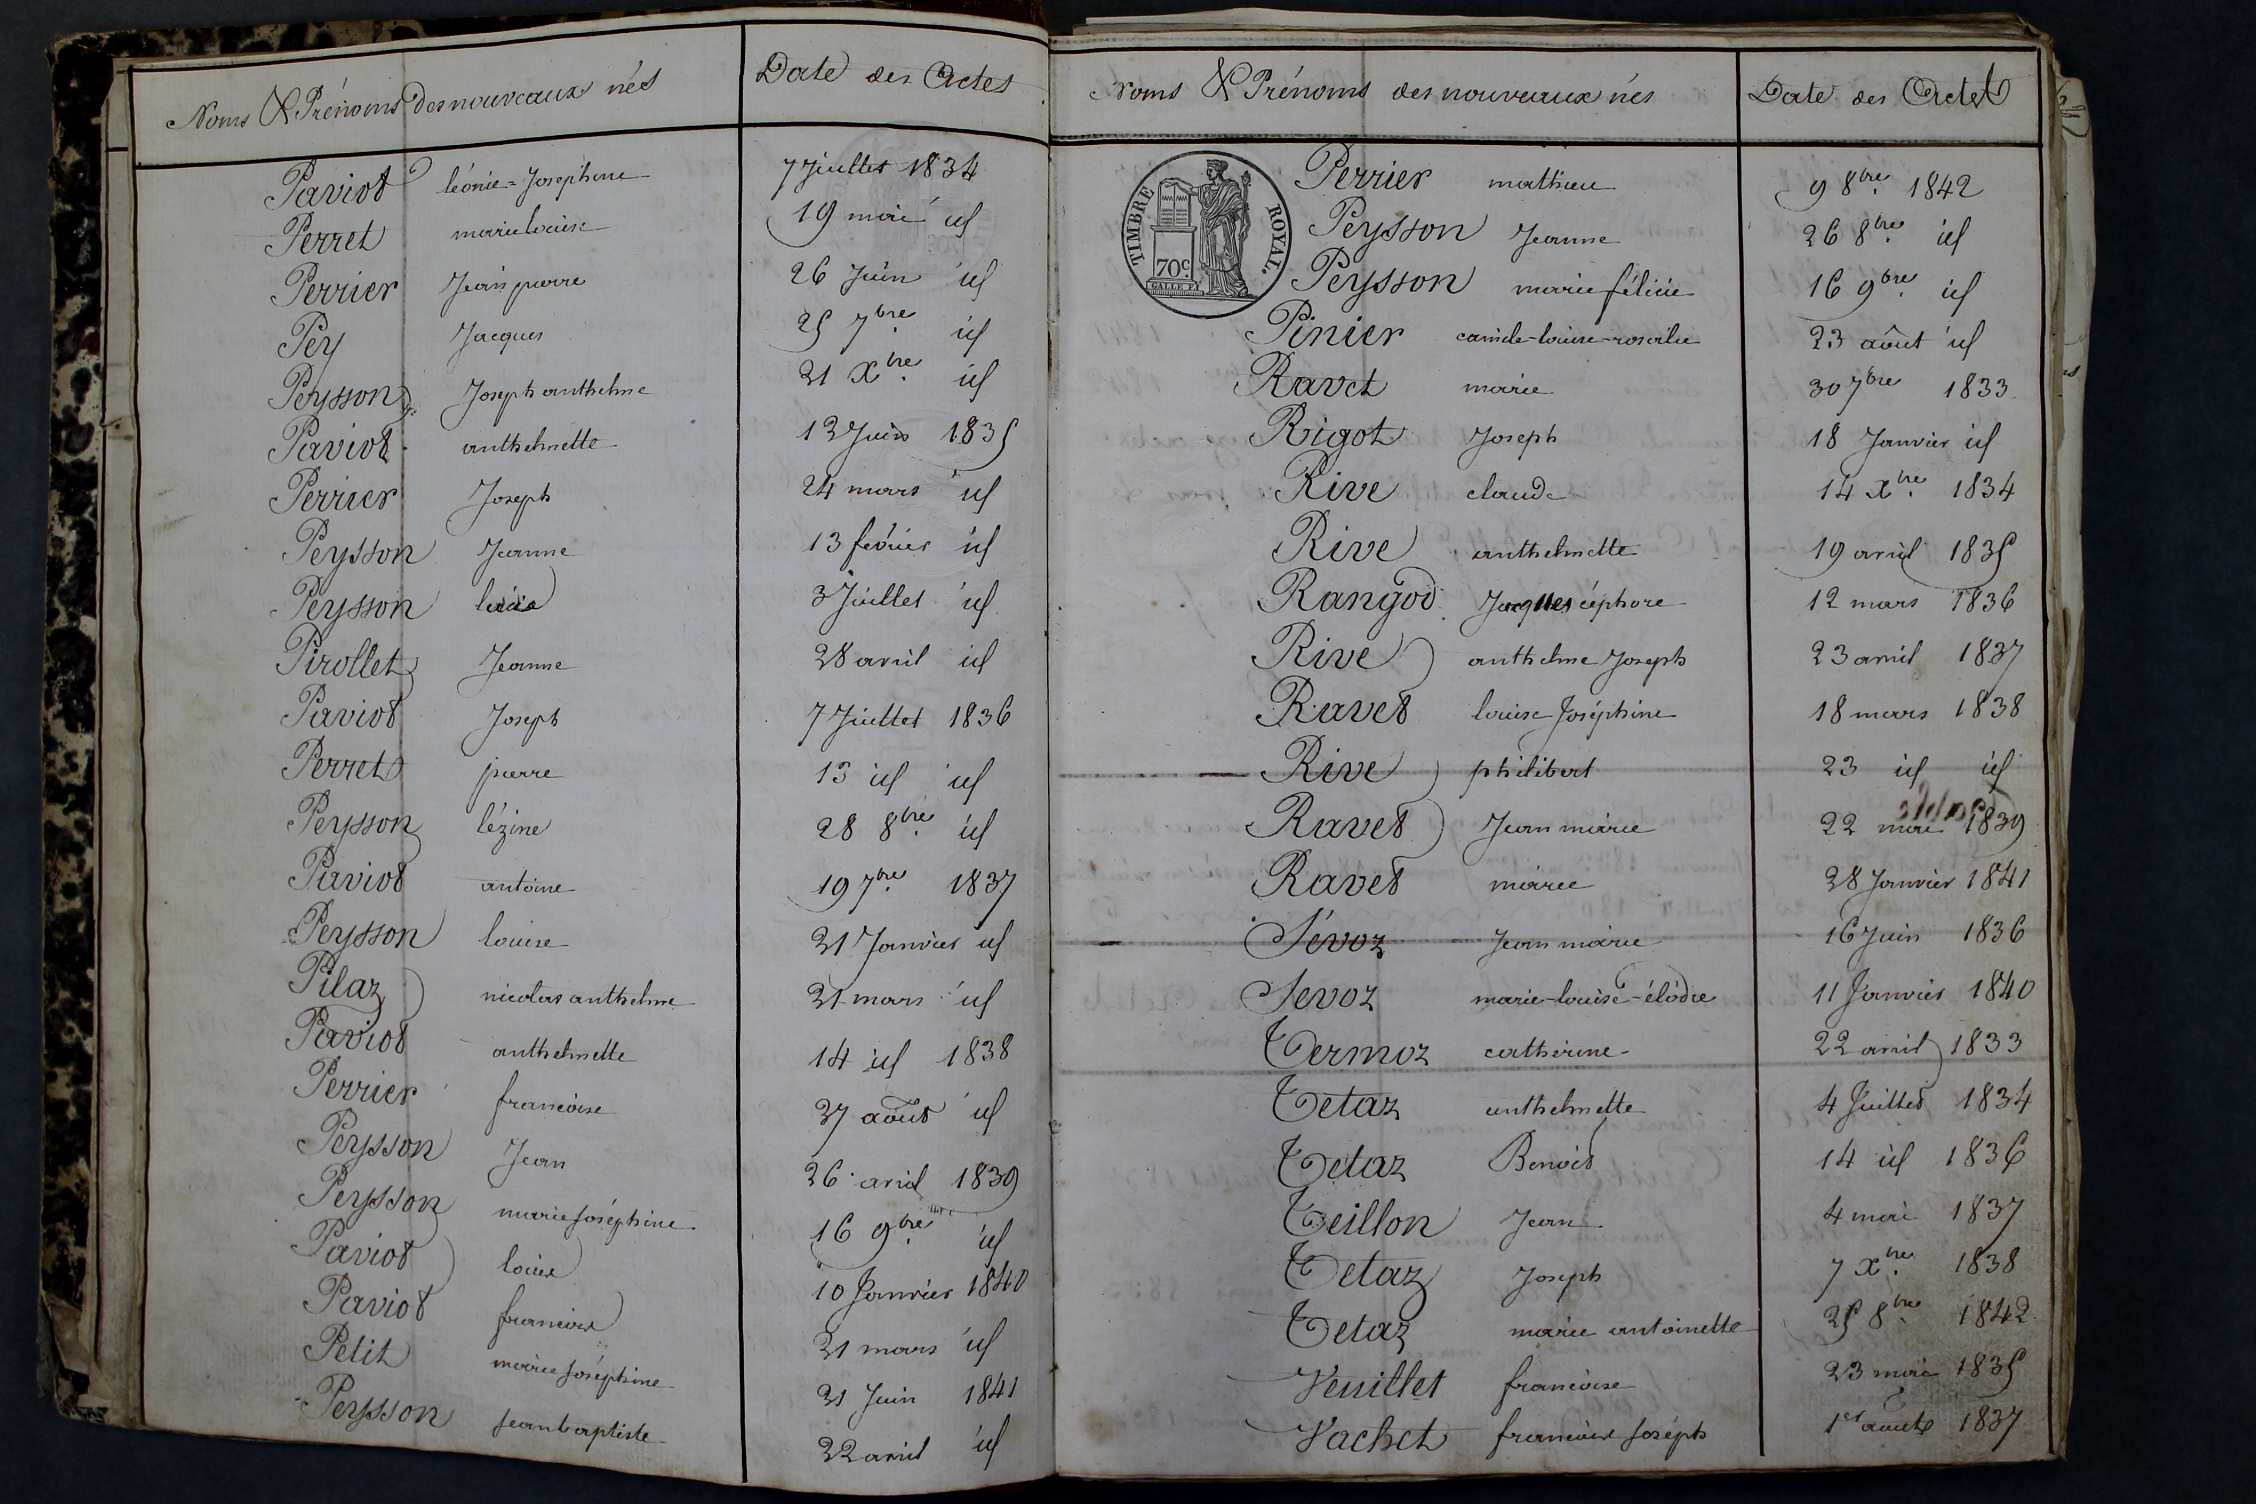 Noms & Prénoms des nouveaux nés Date des Actes
Paviot léonie=Josephine 7 Juillet 1834
Perret marie louise 19 mai id
Perrier Jean pierre 26 Juin id
Pey Jacques 25 7bre id
Peysson Joseph anthelme 21 Xbre id
Paviot anthelmette 12 Juin 1835
Perrier Joseph 24 mars id
Peysson Jeanne 13 février id
Peysson 3 Juillet id
Pirollet Jeanne 28 avril id
Paviot Joseph 7 Juillet 1836
Perret pierre 13 id id
Peysson lézine 28 8bre id
Paviot antoine 19 7bre 1837
Peysson louise 21 Janvier id
Pilaz nicolas anthelme 21 mars id
Paviot anthelmette 14 id 1838
Perrier francoise 27 août id
Peysson Jean 26 avril 1839
Peysson marie Joséphine 16 9bre id
Paviot louis 10 Janvier 1840
Paviot francois 21 mars id
Petit marie Joséphine 21 Juin 1841
Peysson Jean baptiste 22 avril id
Noms & Prénoms des nouveaux nés Date des Actes
TIMBRE ROYAL.
70c.
Perrier mathieu 9 8bre 1842
Peysson Jeanne 26 8bre id
Peysson marie félicie 16 9bre id
Pinier camile-louise-rosalie 23 août id
Ravet marie 30 7bre 1833
Rigot Joseph 18 Janvier id
Rive claude 14 Xbre 1834
Rive anthelmette 19 avril 1835
Rangod Jacques céphore 12 mars 1836
Rive anthelme Joseph 23 avril 1837
Ravet louise Joséphine 18 mars 1838
Rive philibert 23 id id
Ravet Jean marie 22 mai 1839
Ravet marie 28 Janvier 1841
Sévoz Jean marie 16 Juin 1836
Sevoz marie-louise-élodie 11 Janvier 1840
Termoz catherine 22 avril 1833
Tetaz anthelmette 4 Juillet 1834
Tetaz Benoit 14 id 1836
Teillon Jean 4 mai 1837
Tetaz Joseph 7 Xbre 1838
Tetaz marie antoinette 25 8bre 1842
Veuillet francoise 23 mai 1835
Vachet francois Joséph 1er août 1837